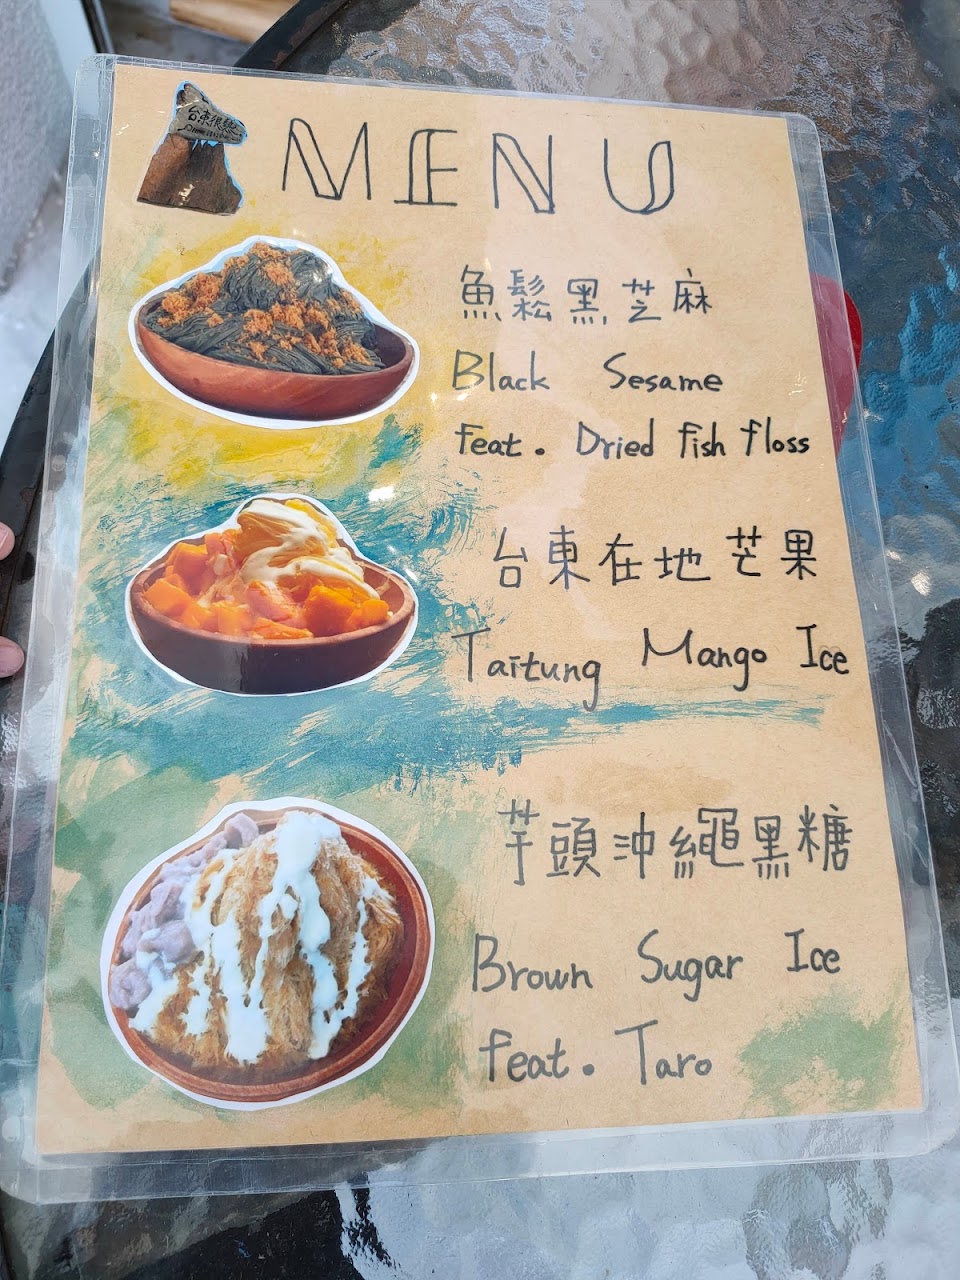 台東很熱
MENU
魚鬆黑芝麻
Black Sesame
feat. Dried fish floss
台東在地芒果
Taitung Mango Ice
芋頭沖繩黑糖
Brown Sugar Ice
feat. Taro